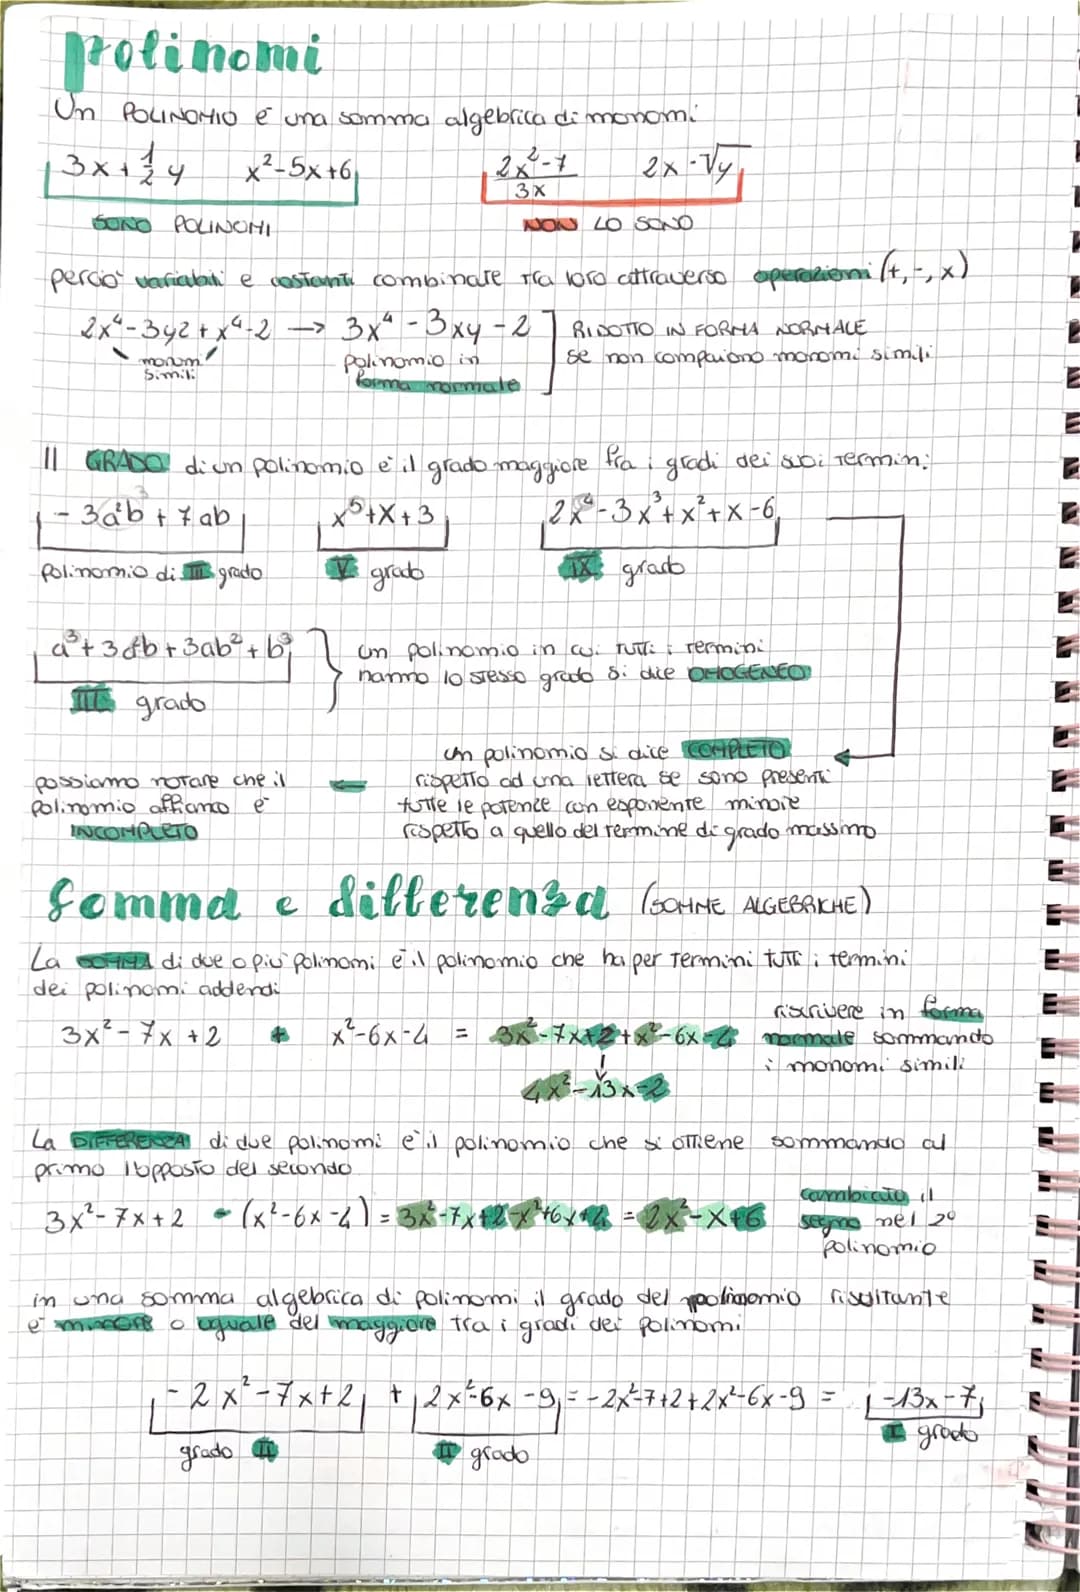 polinomi
Un POLINOMIO è una somma algebrica di monomi
3x + 1/2 y   x²-5x+6   2x²-7/3x   2x-√y
SONO POLINOMI   NON LO SONO
perciò variabili e costanti combinate tra loro attraverso operazioni (+,-,x)
2x⁴-3yz+x⁴-2 → 3x⁴-3xy-2   RIDOTTO IN FORMA NORMALE
monomi simili   polinomio in forma normale   se non compaiono monomi simili
Il GRADO di un polinomio è il grado maggiore fra i gradi dei suoi termini:
-3a²b+7ab   x⁵+x+3   2x⁴-3x³+x²+x-6
polinomio di III grado   V grado   IX grado
a³+3a²b+3ab²+b³   un polinomio in cui tutti i termini
hanno lo stesso grado si dice OMOGENEO
III grado
un polinomio si dice COMPLETO
possiamo notare che il   rispetto ad una lettera se sono presenti
polinomio affianco è   tutte le potenze con esponente minore
INCOMPLETO   rispetto a quello del termine di grado massimo
Somma e differenza (SOMME ALGEBRICHE)
La SOMMA di due o più polinomi è il polinomio che ha per termini tutti i termini
dei polinomi addendi
3x²-7x+2 + x²-6x-4 = 3x²-7x+2+x²-6x-4   riscrivere in forma
normale sommando
4x²-13x-2   i monomi simili
La DIFFERENZA di due polinomi è il polinomio che si ottiene sommando al
primo l'opposto del secondo
3x²-7x+2 - (x²-6x-4) = 3x²-7x+2-x²+6x+4 = 2x²-x+6   cambiato il
segno nel 2°
polinomio
in una somma algebrica di polinomi il grado del polinomio risultante
è minore o uguale del maggiore tra i gradi dei polinomi
-2x²-7x+2 + 2x²-6x-9 = -2x²-7+2+2x²-6x-9 = -13x-7
grado II   II grado   I grado